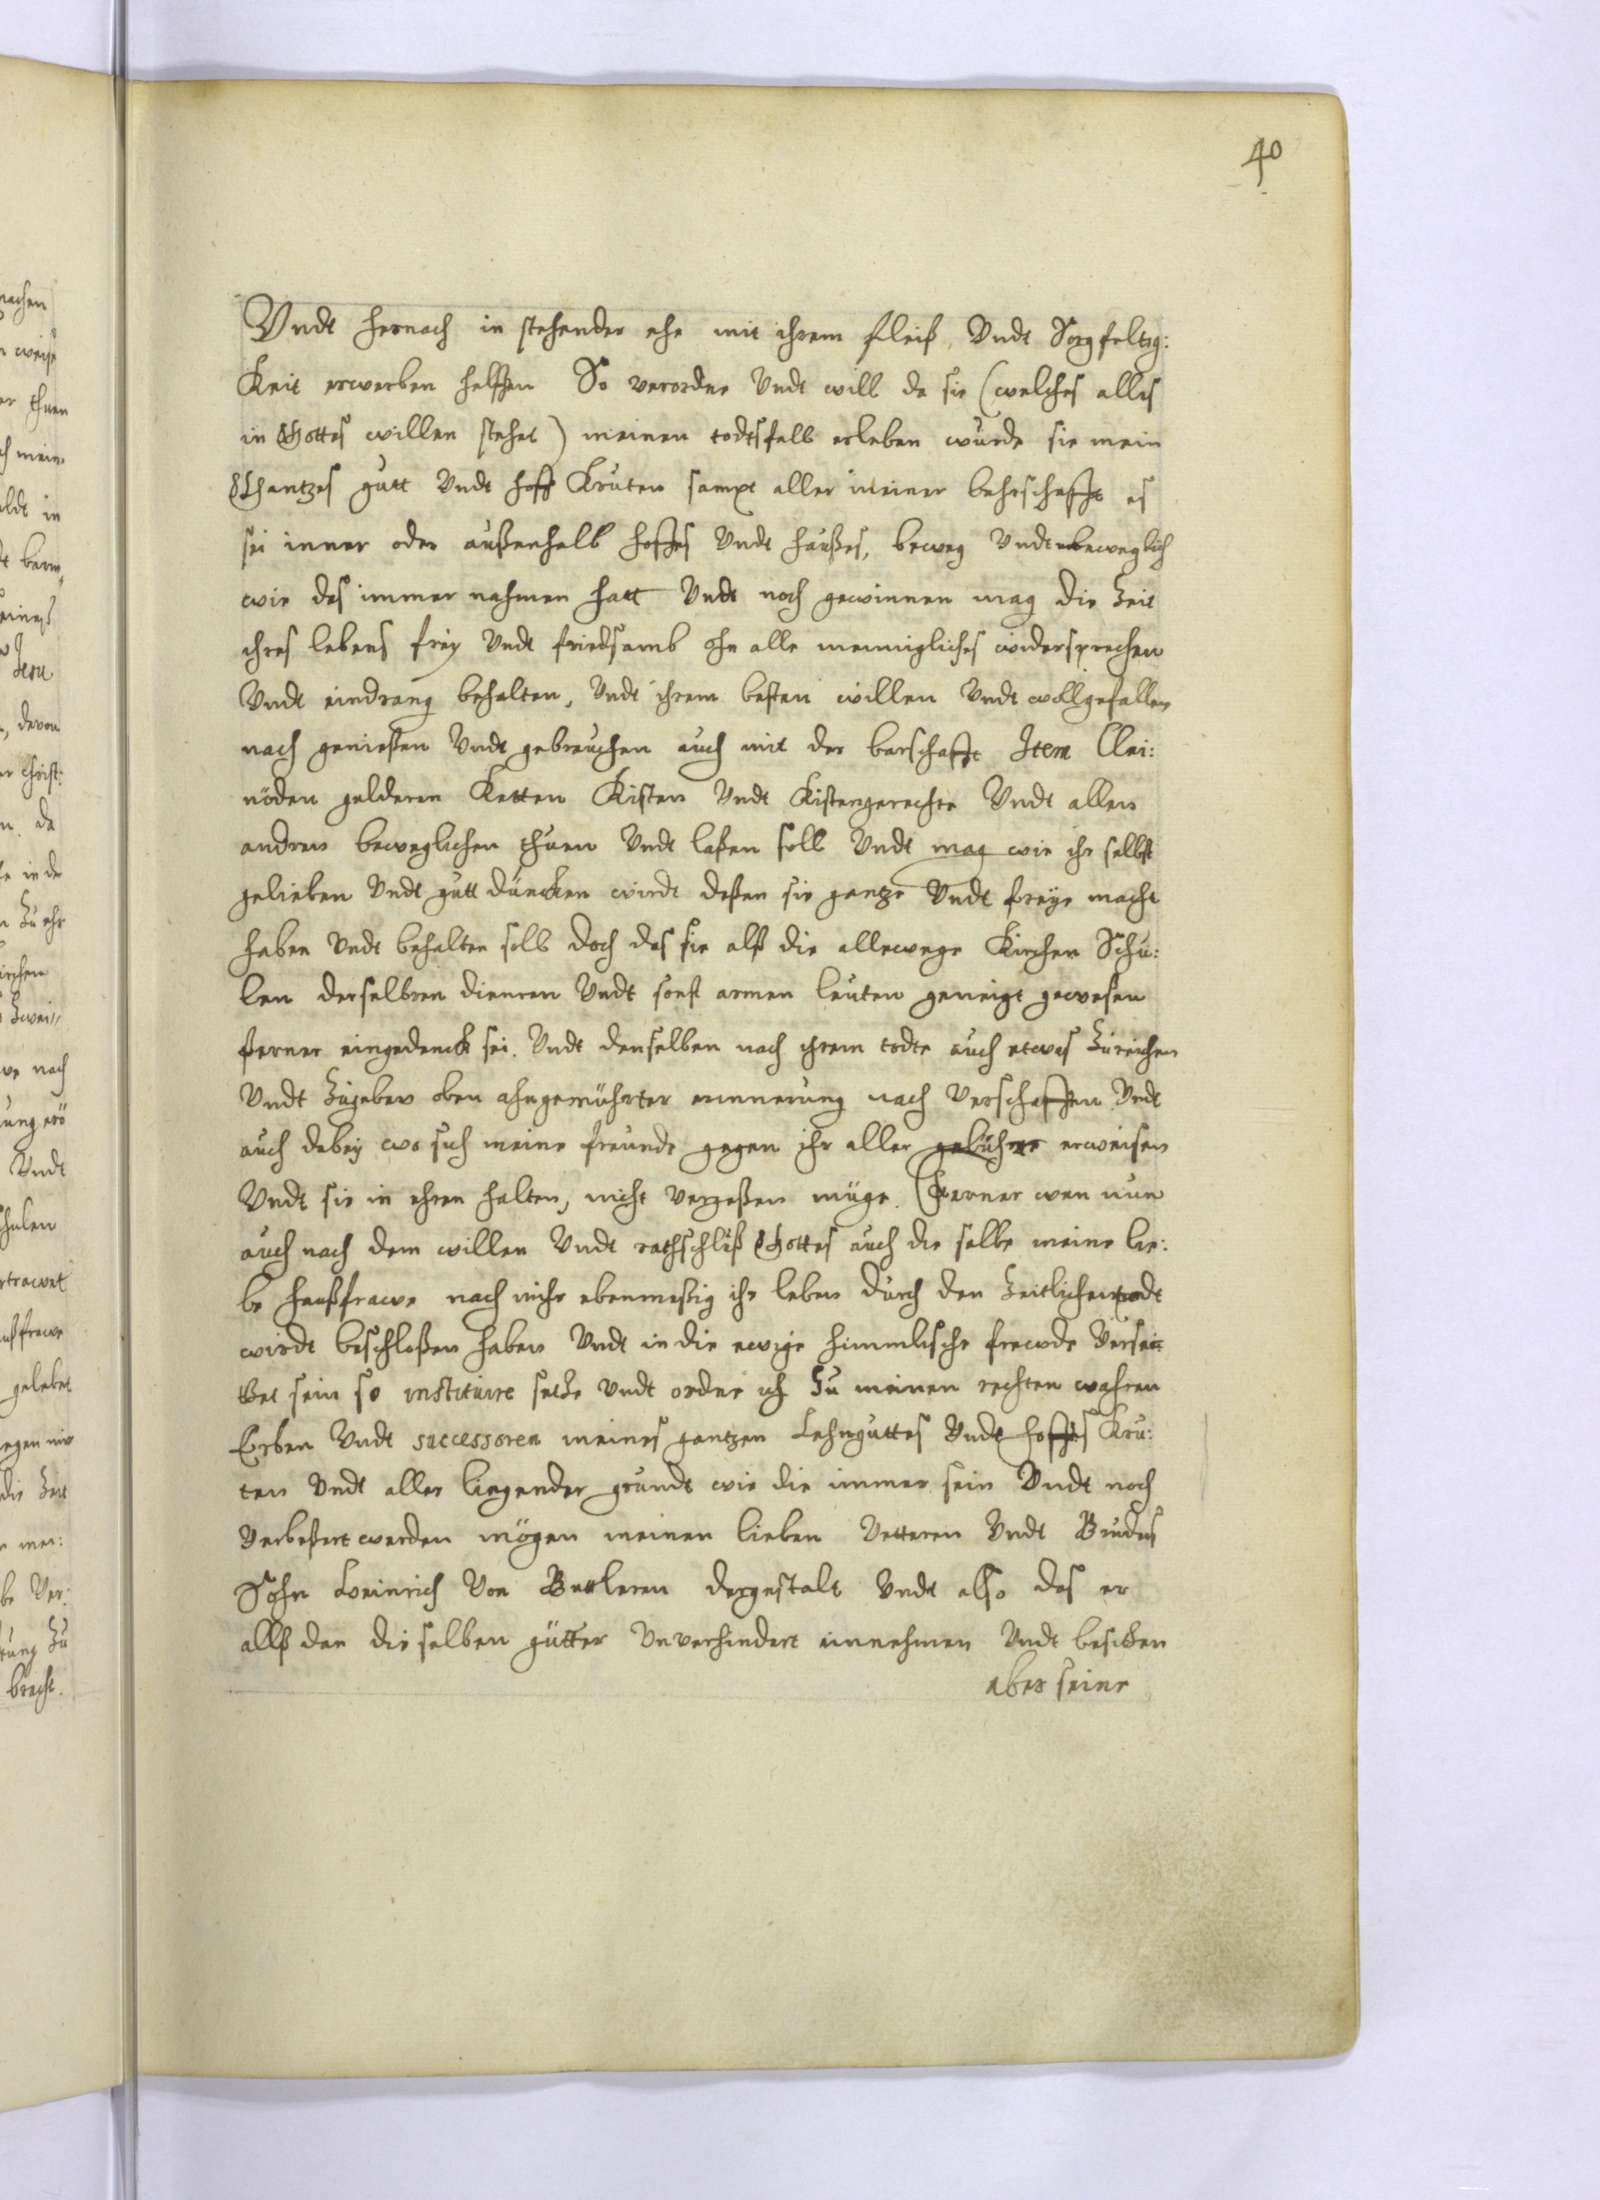 40
Vndt hernach in stehender ehe mit ihrem fleiß Vndt Sorgfeltig:
Keit erwerben helffen So verordne Vndt will da sie (welches alles
in Gottes willen stehet) meinen todtsfall erleben wurde sie mein
Gantzes gutt Vndt hoff Kruten sampt aller meiner behrschafft es
sei inner oder außenhalb hoffes Vndt haußes, beweg Vndt unbeweglich
wie das immer nahmen hatt Vndt noch gewinnen mag die Zeit
ihres lebens frey Vndt friedsamb ohn alle menniglichs widersprechen
Vndt eindrang behalten, Vndt ihrem besten willen Vndt wollgefallen
nach genießen Vndt gebrauchen auch mit der barschafft Item Clei:
nöden gelderen Ketten Kisten Vndt Kistengerechte Vndt allen
andren beweglichen thuen Vndt laßen soll Vndt mag wie ihr selbst
gelieben Vndt gutt düncken wirdt deßen sie gantze Vndt freye macht
haben Vndt behalten soll doch das sie alß die allewege Kirchen Schu:
len derselbren dieneren Vndt sonst armen leuten geneigt gewesen
ferner eingedenck sei. Vndt denselben nach ihrem todte auch etwas Zureichen
Vndt Zugeben oben ahngerührter erinnerung nach Verschaffen Vndt
auch dabey wo sich meine freunde gegen ihr aller gebühre erweisen
Vndt sie in ehren halten, nicht vergeßen müge. Ferner wen nun
auch nach dem willen Vndt rathschluß Gottes auch die selbe meine lie:
be haußfrawe nach mihr ebenmeßig ihr leben durch den Zeitlichen todt
wirdt beschloßen haben Vndt in die ewige himmlische frewde Verse
tzet sein so instituire setze Vndt ordne ich Zu meinen rechten wahren
Erben Vndt successoren meines gantzen Lehnguttes Vndt hoffes Kru:
ten Vndt aller liegender grundt wie die immer sein Vndt noch
Verbeßert werden mögen meinen lieben Vetteren Vndt Bruders
Sohn Heinrich Von Buttleren dergestalt Vndt also das er
allß dan die selben gütter Vnverhindert einnehmen Vndt besitzen
aber seine